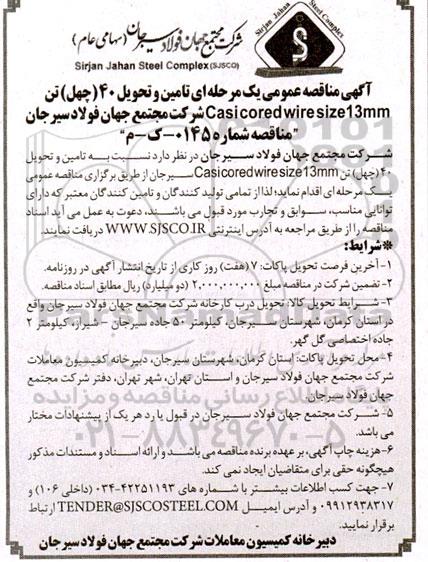 Sirjan Jahan Steel Complex
شرکت مجتمع جهان فولاد سیرجان (سهامی عام)
Sirjan Jahan Steel Complex (SJSCO)
آگهی مناقصه عمومی یک مرحله ای تامین و تحویل ۴۰ (چهل) تن
Casi cored wire size 13mm شرکت مجتمع جهان فولاد سیرجان
"مناقصه شماره ۰۱۴۵-ک-م"
شرکت مجتمع جهان فولاد سیرجان در نظر دارد نسبت به تامین و تحویل
۴۰ (چهل) تن Casi cored wire size 13mm سیرجان از طریق برگزاری مناقصه عمومی
یک مرحله ای اقدام نماید؛ لذا از تمامی تولید کنندگان و تامین کنندگان معتبر که دارای
توانایی مناسب، سوابق و تجارب مورد قبول می باشند، دعوت به عمل می آید اسناد
مناقصه را از طریق مراجعه به آدرس اینترنتی WWW.SJSCO.IR دریافت نمایند.
*شرایط:
۱- آخرین فرصت تحویل پاکات: ۷ (هفت) روز کاری از تاریخ انتشار آگهی در روزنامه.
۲- تضمین شرکت در مناقصه مبلغ ۲,۰۰۰,۰۰۰,۰۰۰ (دو میلیارد) ریال مطابق اسناد مناقصه.
۳- شرایط تحویل کالا: تحویل درب کارخانه شرکت مجتمع جهان فولاد سیرجان واقع
در استان کرمان، شهرستان سیرجان، کیلومتر ۵۰ جاده سیرجان - شیراز، کیلومتر ۲
جاده اختصاصی گل گهر.
۴- محل تحویل پاکات: استان کرمان، شهرستان سیرجان، دبیرخانه کمیسیون معاملات
شرکت مجتمع جهان فولاد سیرجان و استان تهران، شهر تهران، دفتر شرکت مجتمع
جهان فولاد سیرجان.
۵- شرکت مجتمع جهان فولاد سیرجان در قبول یا رد هر یک از پیشنهادات مختار
می باشد.
۶- هزینه چاپ آگهی، بر عهده برنده مناقصه می باشد و ارائه اسناد و مستندات مذکور
هیچگونه حقی برای متقاضیان ایجاد نمی کند.
۷- جهت کسب اطلاعات بیشتر با شماره های ۴۲۲۵۱۱۹۳-۰۳۴ (داخلی ۱۰۶) و
۰۹۹۱۲۹۳۸۳۱۷ و آدرس ایمیل TENDER@SJSCOSTEEL.COM ارتباط
برقرار نمایید.
دبیرخانه کمیسیون معاملات شرکت مجتمع جهان فولاد سیرجان
۰۲۱-۸۸۳۴۹۶۷۰-۵